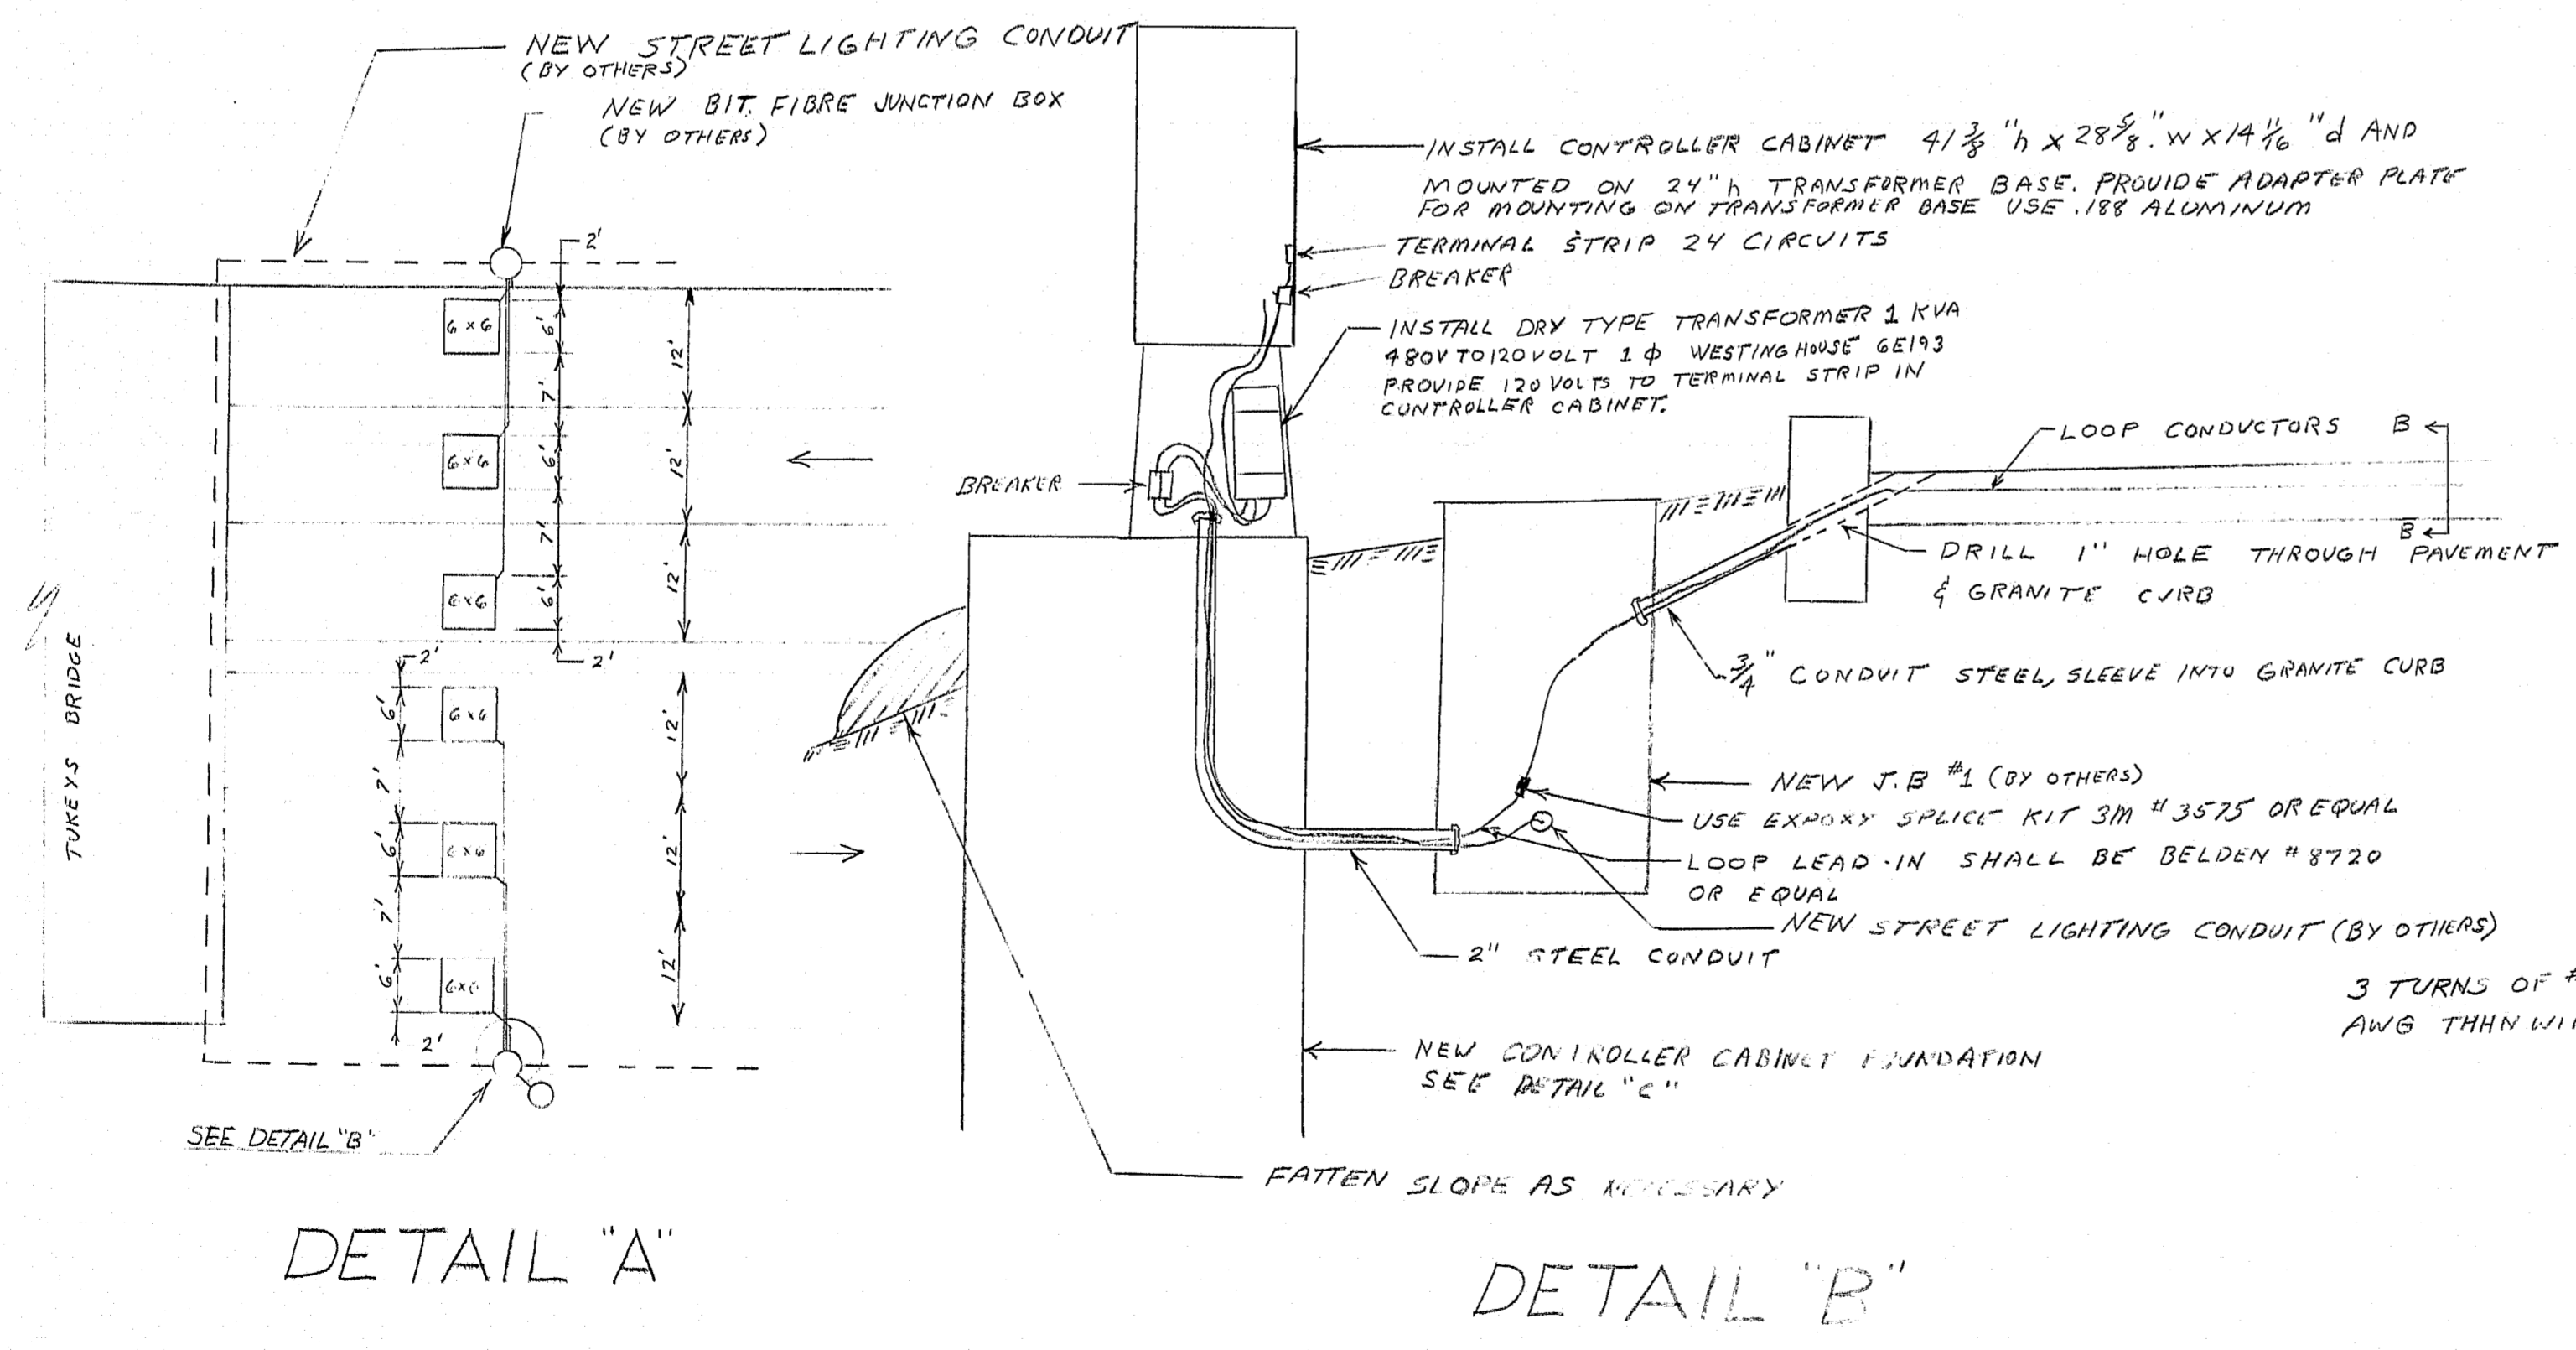 NEW STREET LIGHTING CONDUIT
(BY OTHERS)
NEW BIT. FIBRE JUNCTION BOX
(BY OTHERS)
2'
6 x 6
6'
12'
7'
6 x 6
6'
12'
7'
6 x 6
6'
12'
2'
2'
6'
6 x 6
12'
7'
6'
6 x 6
12'
7'
6'
6 x 6
12'
2'
TUKEYS BRIDGE
SEE DETAIL "B"
DETAIL "A"
INSTALL CONTROLLER CABINET 41 3/8 "h x 28 5/8 "w x 14 11/16 "d AND
MOUNTED ON 24"h TRANSFORMER BASE. PROVIDE ADAPTER PLATE
FOR MOUNTING ON TRANSFORMER BASE USE .188 ALUMINUM
TERMINAL STRIP 24 CIRCUITS
BREAKER
INSTALL DRY TYPE TRANSFORMER 1 KVA
480V TO 120 VOLT 1 φ WESTINGHOUSE GE193
PROVIDE 120 VOLTS TO TERMINAL STRIP IN
CONTROLLER CABINET.
BREAKER
LOOP CONDUCTORS
B
B
DRILL 1" HOLE THROUGH PAVEMENT
& GRANITE CURB
3/4" CONDUIT STEEL, SLEEVE INTO GRANITE CURB
NEW J.B #1 (BY OTHERS)
USE EXPOXY SPLICE KIT 3M # 3575 OR EQUAL
LOOP LEAD-IN SHALL BE BELDEN # 8720
OR EQUAL
NEW STREET LIGHTING CONDUIT (BY OTHERS)
2" STEEL CONDUIT
3 TURNS OF #
AWG THHN WI
NEW CONTROLLER CABINET FOUNDATION
SEE DETAIL "C"
FATTEN SLOPE AS NECESSARY
DETAIL "B"